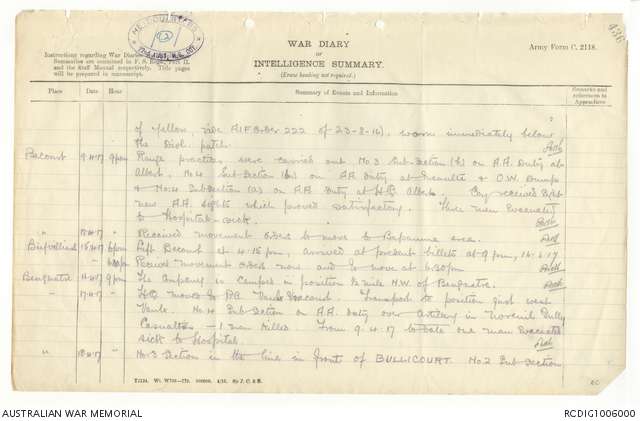 436
HEADQUARTERS
WAR DIARY
OR
INTELLIGENCE SUMMARY.
(Erase heading not required.)
Army Form C. 2118.
Instructions regarding War Diaries and Intelligence
Summaries are contained in F. S. Regs., Part II.
and the Staff Manual respectively. Title pages
will be prepared in manuscript.
Place Date Hour Summary of Events and Information Remarks and references to Appendices
of yellow, vide AIF Order 222 of 23-8-16), worn immediately below
the Divl. patch.
Becourt 9.4.17 9pm Range practices were carried out No 3 Sub-Section on A.A. Duty at
Albert. No 4 Sub-Section on AA Duty at & O.W. Dumps
& No. 4 Sub-Section (a) on A.A. Duty at H.Q. Albert. Coy received
new AA Sights which proved satisfactory. Three men Evacuated
to Hospital - sick.
" " Received movement Orders to move to Bapaume area.
Left Becourt at 4.15 pm, arrived at present billets at 9 pm, 16.4.17
Received movement orders now and to move at 6.30 pm
Beugnatre 9pm The Company is camped in position ½ mile N.W. of Beugnatre.
" 17.4.17 " HQ moves to Vaulx Vracourt. Transport to position just west
Vaulx. No 4 Sub-Section on A.A. duty over Artillery in Noreuil Gully
Casualties - 1 man killed. From 9.4.17 to date one man Evacuated
sick to Hospital.
" 18.4.17 " No. 3 Section in the line in front of BULLICOURT. No 2 Sub Section
AUSTRALIAN WAR MEMORIAL
RCDIG1006000